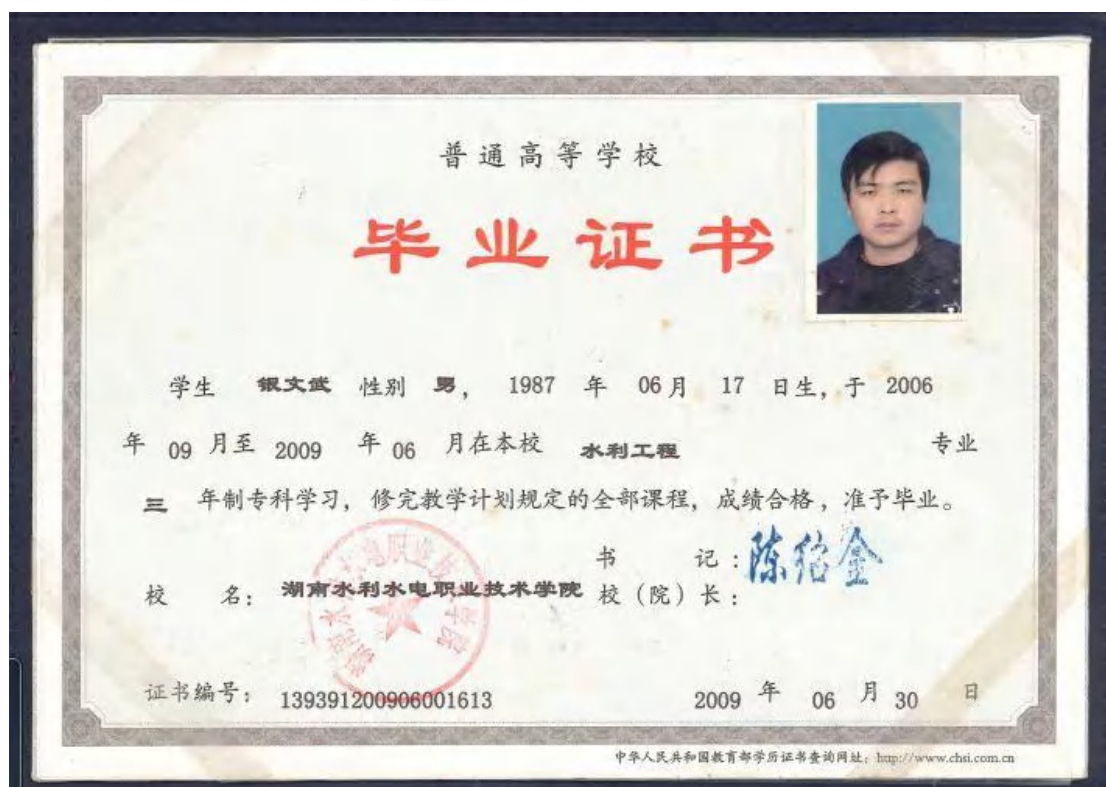 普通高等学校
毕业证书
学生 银文武 性别 男, 1987 年 06月 17 日生, 于 2006
年 09 月至 2009 年 06 月在本校 水利工程 专业
三 年制专科学习, 修完教学计划规定的全部课程, 成绩合格, 准予毕业。
书 记:
校 名: 湖南水利水电职业技术学院 校(院)长: 陈绍金
湖南水利水电职业技术学院
证书编号: 139391200906001613 2009 年 06 月 30 日
中华人民共和国教育部学历证书查询网址: http://www.chsi.com.cn